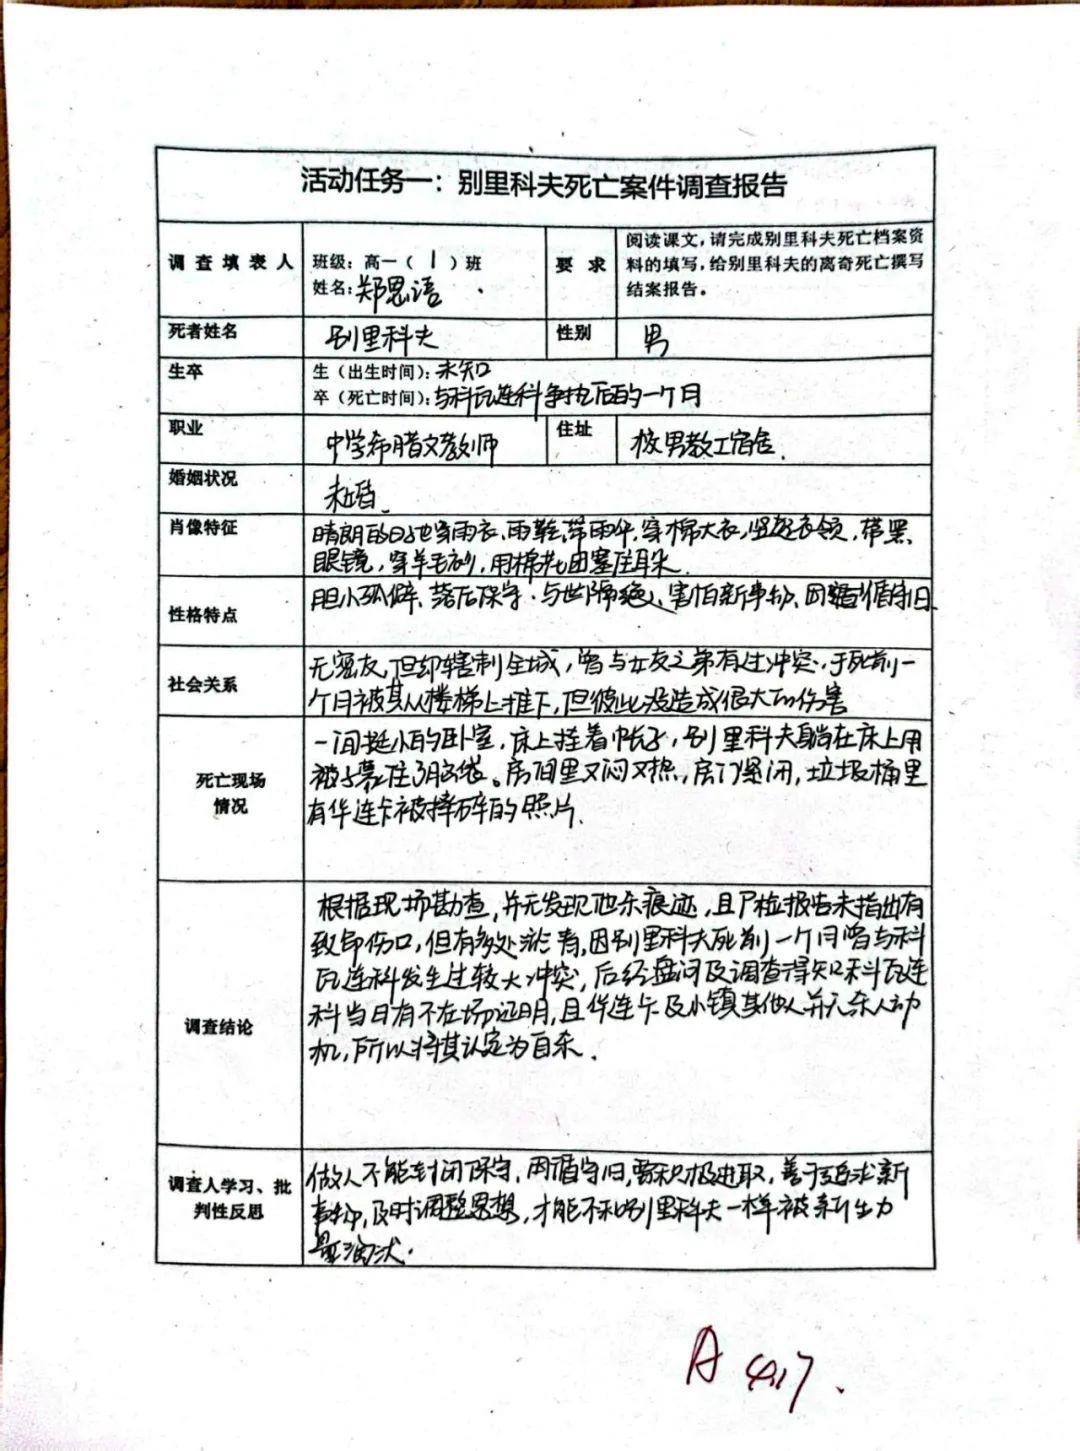 活动任务一：别里科夫死亡案件调查报告
调查填表人
班级：高一（1）班
姓名：郑思语
要求
阅读课文，请完成别里科夫死亡档案资
料的填写，给别里科夫的离奇死亡撰写
结案报告。
死者姓名
别里科夫
性别
男
生卒
生（出生时间）：未知
卒（死亡时间）：与科瓦连科争执后的一个月
职业
中学希腊文教师
住址
校男教工宿舍.
婚姻状况
未婚.
肖像特征
晴朗的日子也穿雨衣、雨鞋、带雨伞，穿棉大衣，竖起衣领，带黑
眼镜，穿羊毛衫，用棉花团塞住耳朵.
性格特点
胆小孤僻、落后保守、与世隔绝、害怕新事物、因循守旧.
社会关系
无密友，但却辖制全城，曾与女友之弟有过冲突，于死前一
个月被其从楼梯上推下，但彼此没造成很大的伤害
死亡现场
情况
一间挺小的卧室，床上挂着帐子，别里科夫躺在床上用
被子蒙住了脑袋。房间里又闷又热，房门紧闭，垃圾桶里
有华连卡被摔碎的照片.
调查结论
根据现场勘查，并无发现他杀痕迹，且尸检报告未指出有
致命伤口，但有多处淤青，因别里科夫死前一个月曾与科
瓦连科发生过较大冲突，后经盘问及调查得知科瓦连
科当日有不在场证明，且华连卡及小镇其他人并无杀人动
机，所以将其认定为自杀.
调查人学习、批
判性反思
做人不能封闭保守，因循守旧，要积极进取，善于追求新
事物，及时调整思想，才能不和别里科夫一样被新生力
量淘汰.
A 4.17.